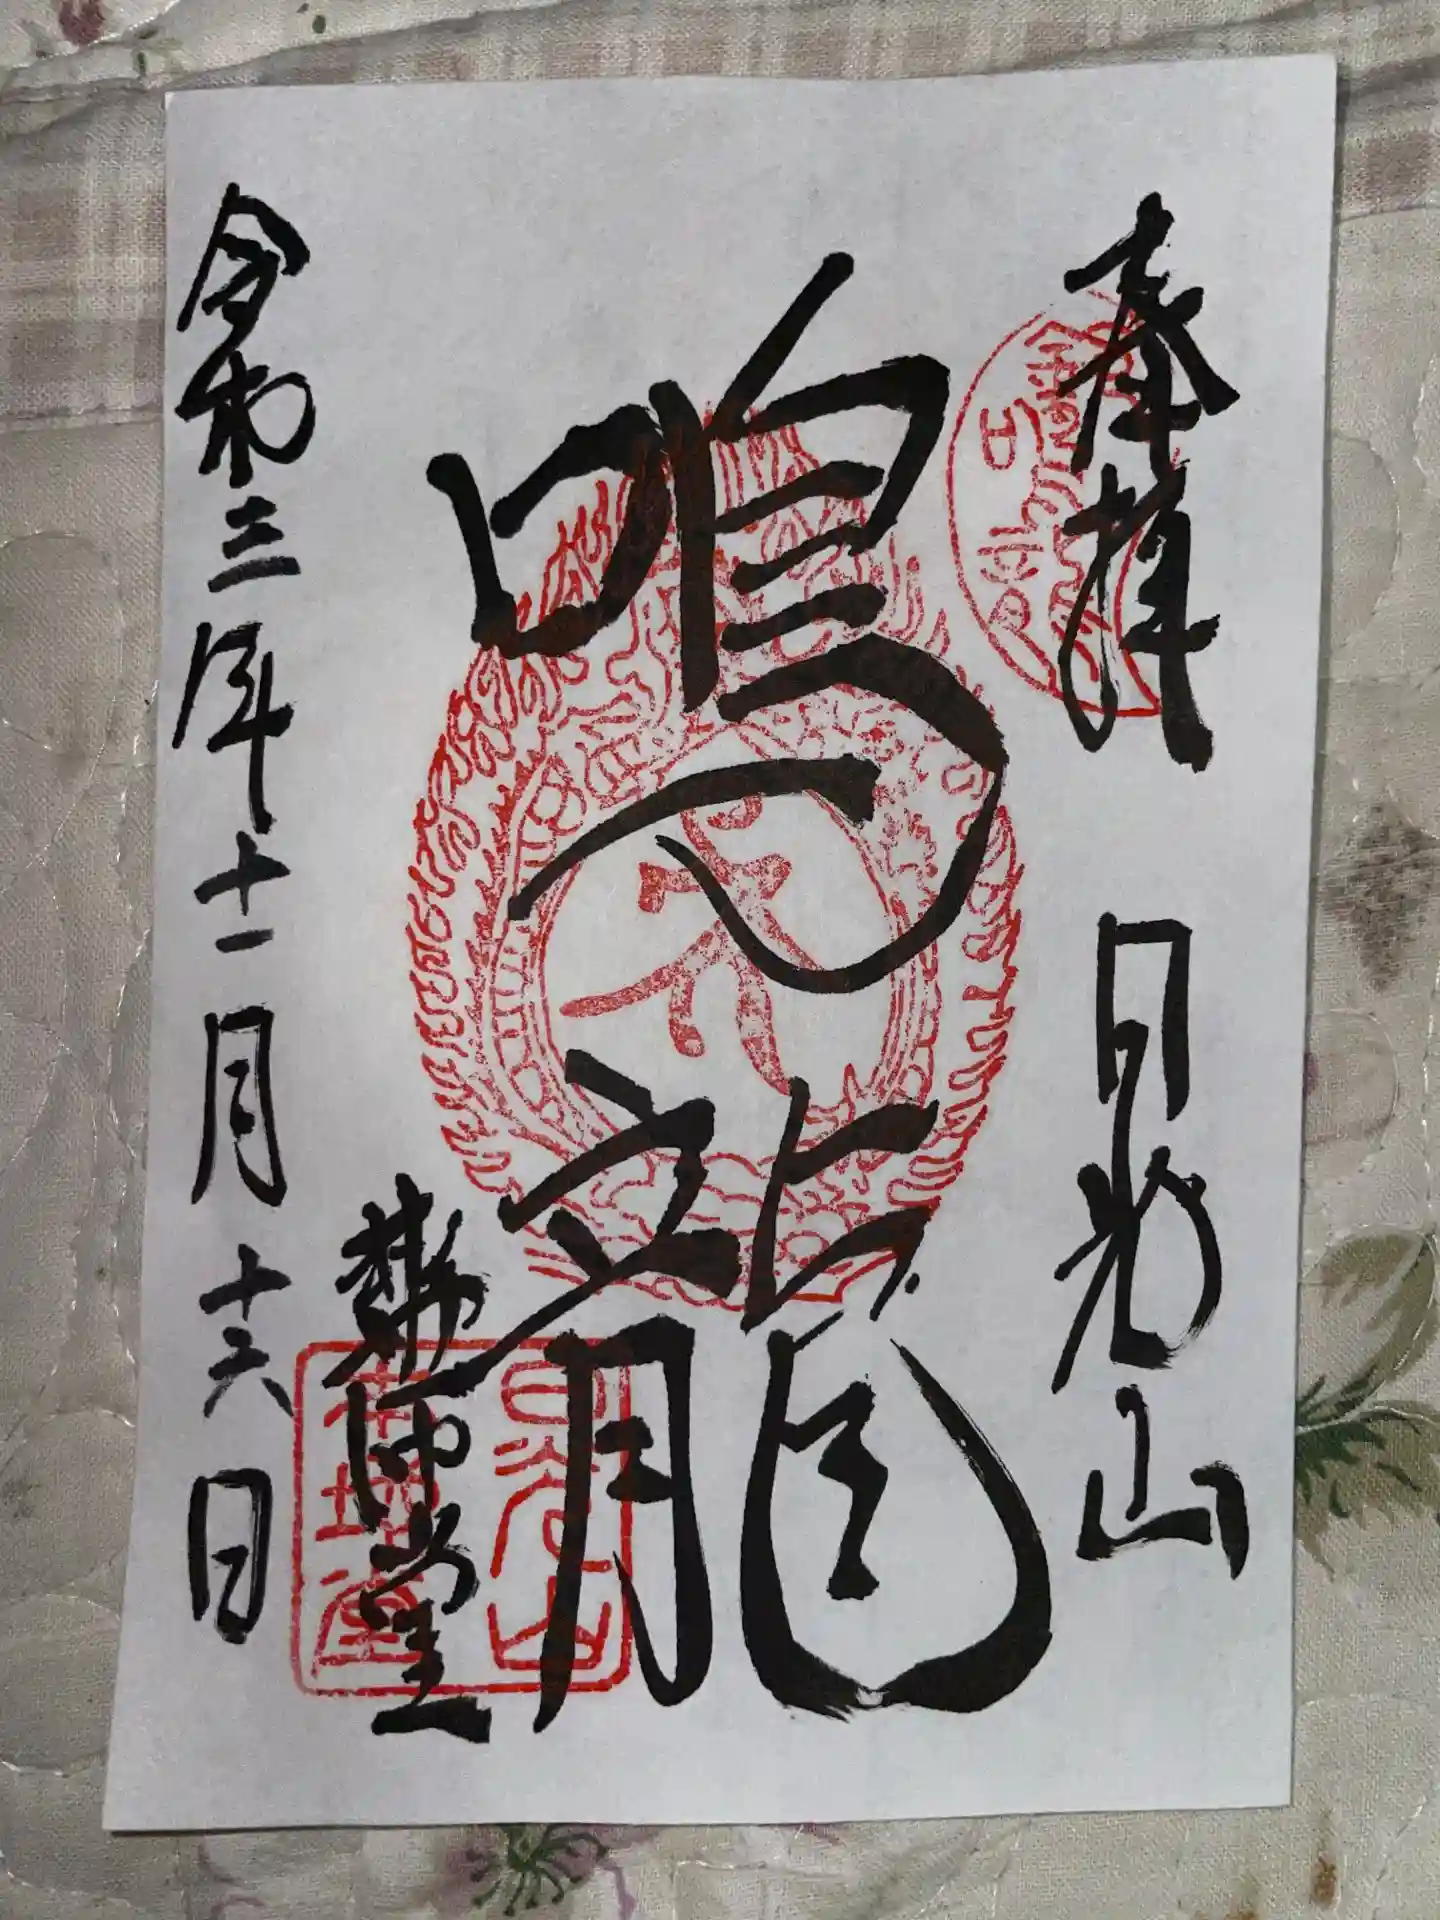 奉拝　日光山
鳴龍
薬師堂
令和三年十一月十六日